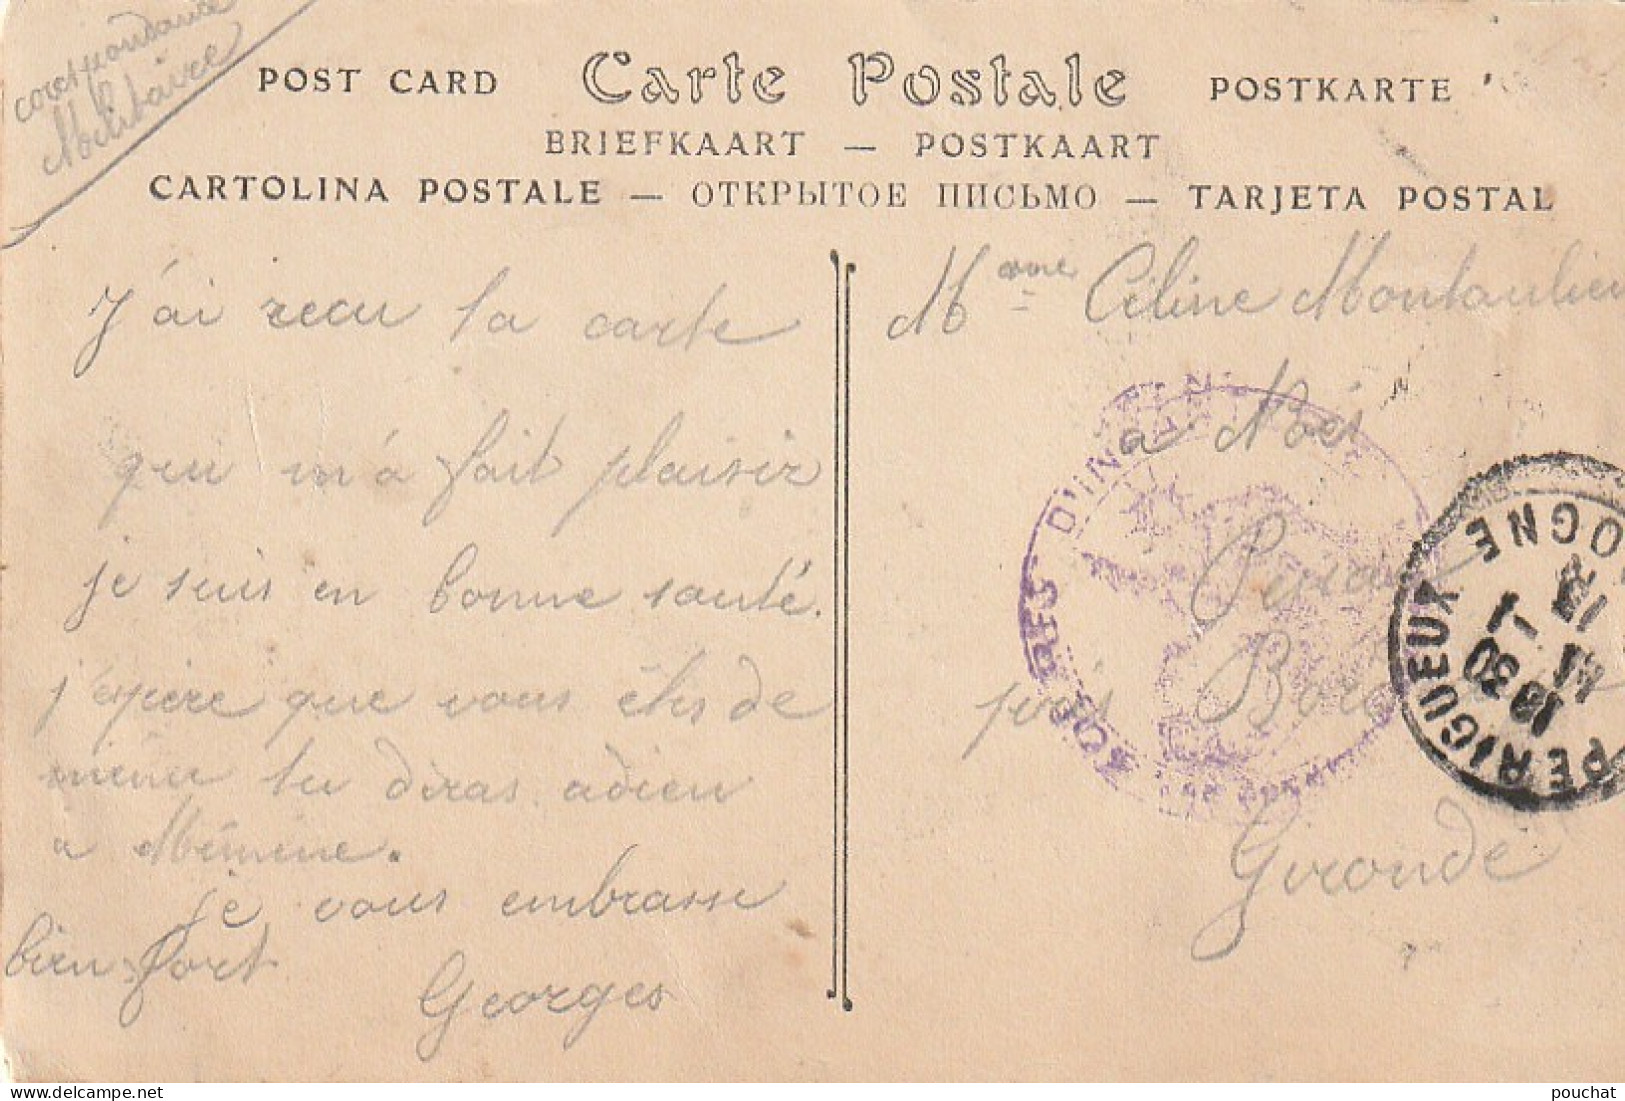 correspondance
Militaire
POST CARD Carte Postale POSTKARTE
BRIEFKAART — POSTKAART
CARTOLINA POSTALE — ОТКРЫТОЕ ПИСЬМО — TARJETA POSTAL
J'ai recu la carte
qui m'a fait plaisir
je suis en bonne santé.
j'espère que vous êtes de
même tu diras adieu
a Mémène.
je vous embrasse
bien fort
Georges
Mme Céline Montaulieu
a
près
Gironde
D'IN
PERIGUEUX
OGNE
pouchat